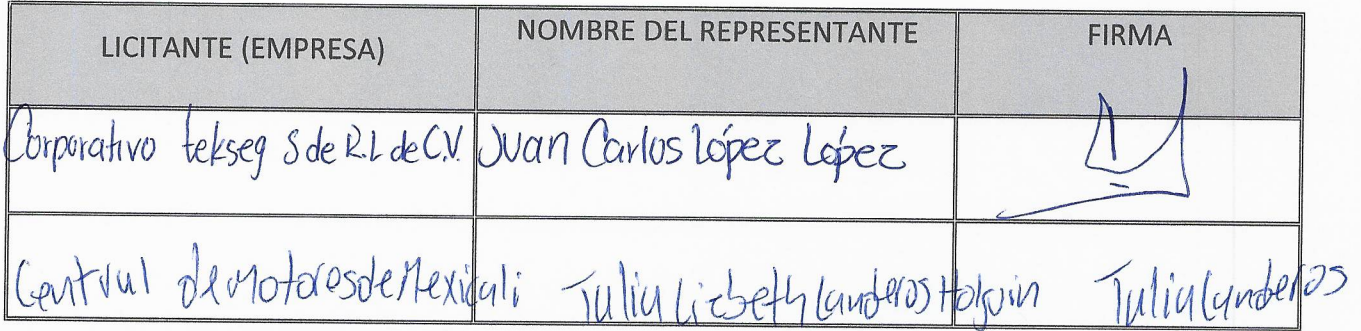 LICITANTE (EMPRESA) NOMBRE DEL REPRESENTANTE FIRMA
Corporativo tekseg S de R.L de C.V. Juan Carlos López López
Central de Motores de Mexicali Julia Lizbeth Landeros Holguin Julia Landeros